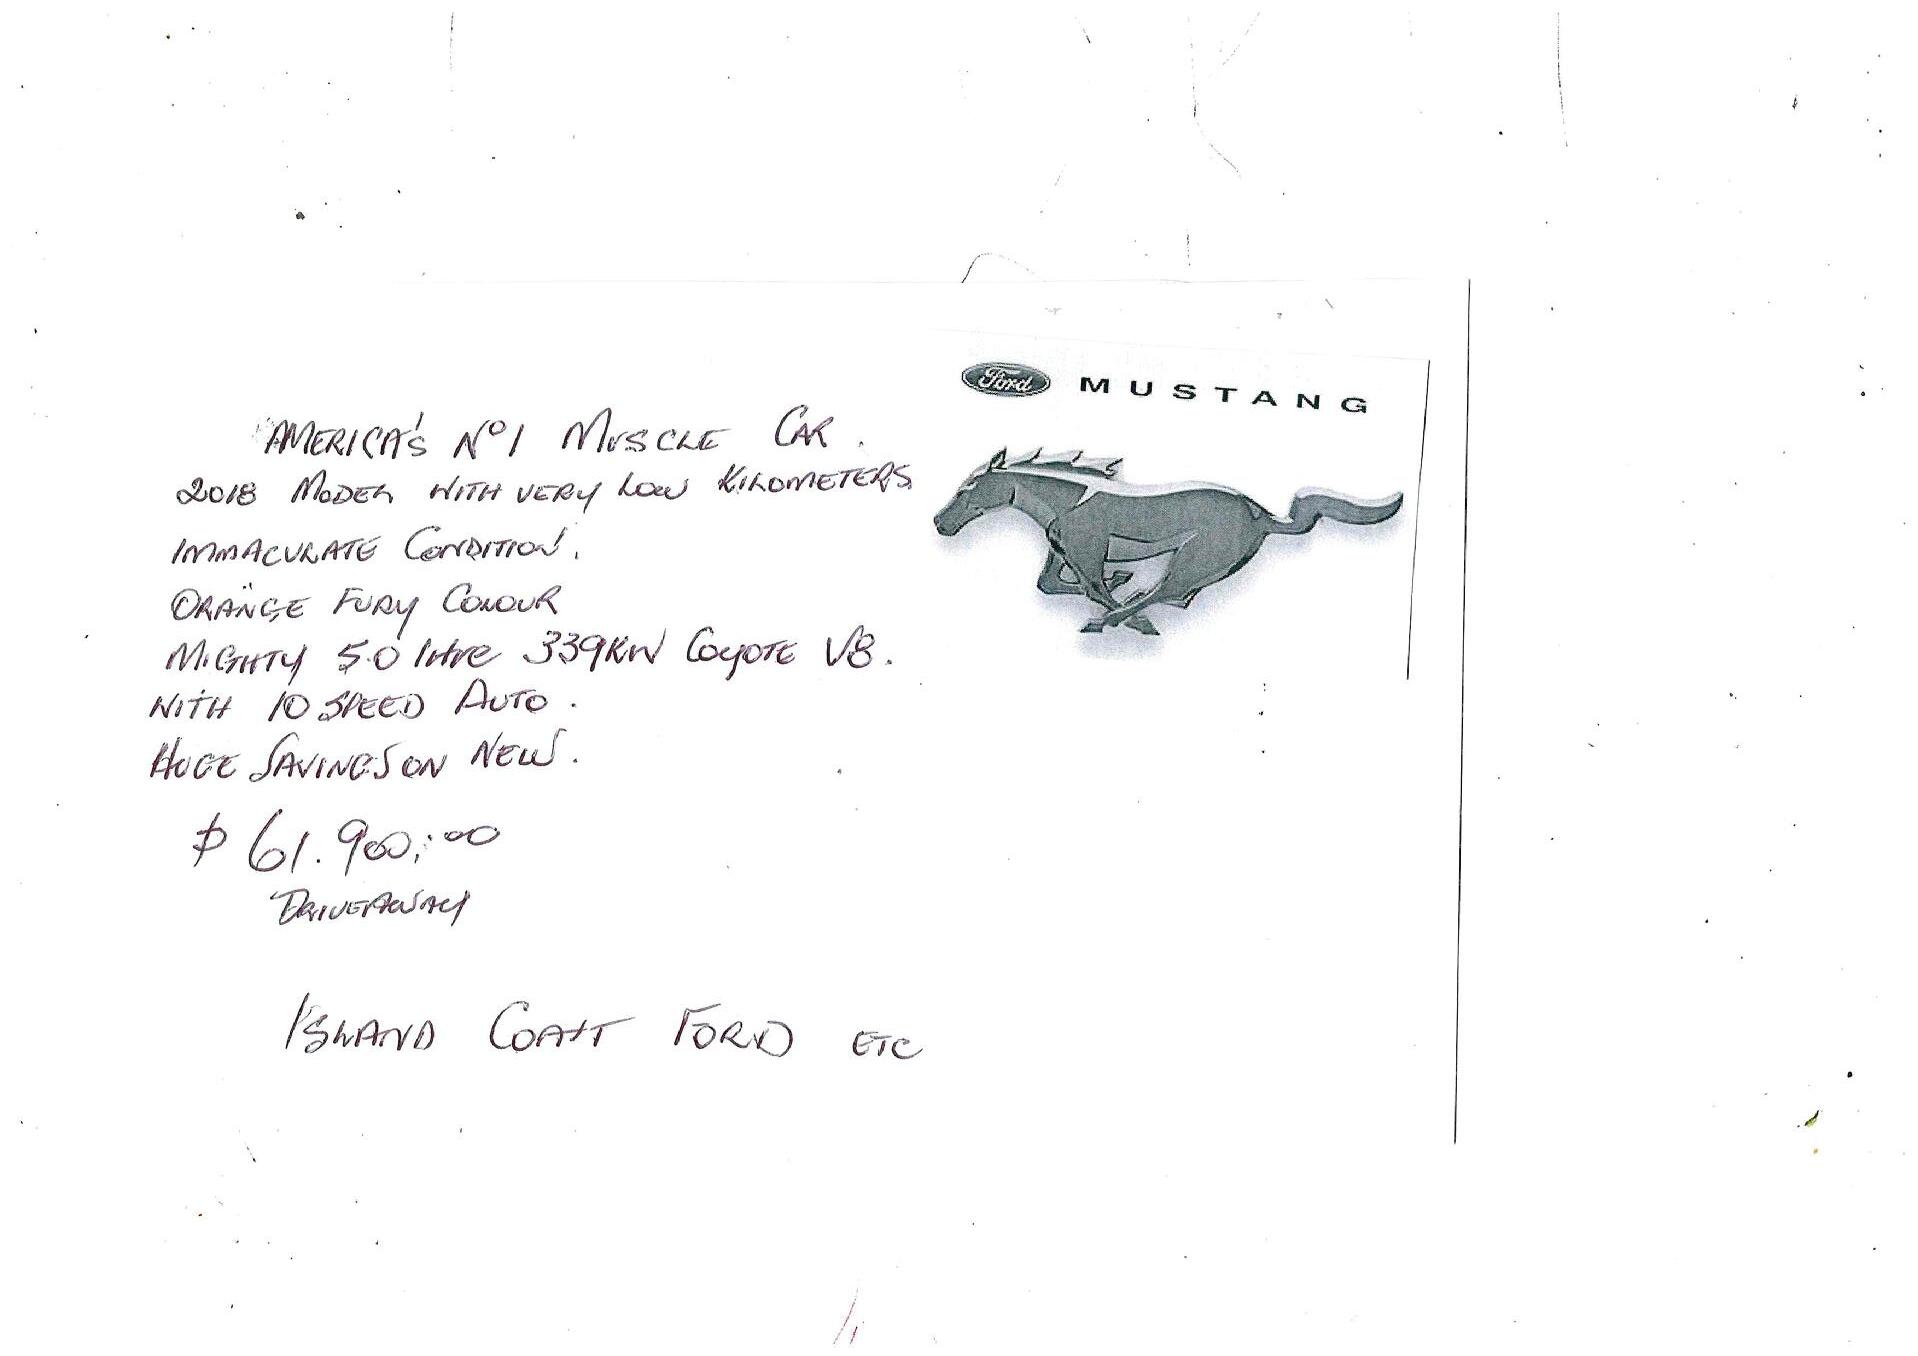 Ford MUSTANG
AMERICA'S Nº1 MUSCLE CAR.
2018 MODEL WITH VERY LOW KILOMETERS
IMMACULATE CONDITION.
ORANGE FURY COLOUR
MIGHTY 5.0 litre 339KW COYOTE V8.
WITH 10 SPEED AUTO.
HUGE SAVINGS ON NEW.
$61.900.00
DRIVEAWAY
ISLAND COAST FORD ETC